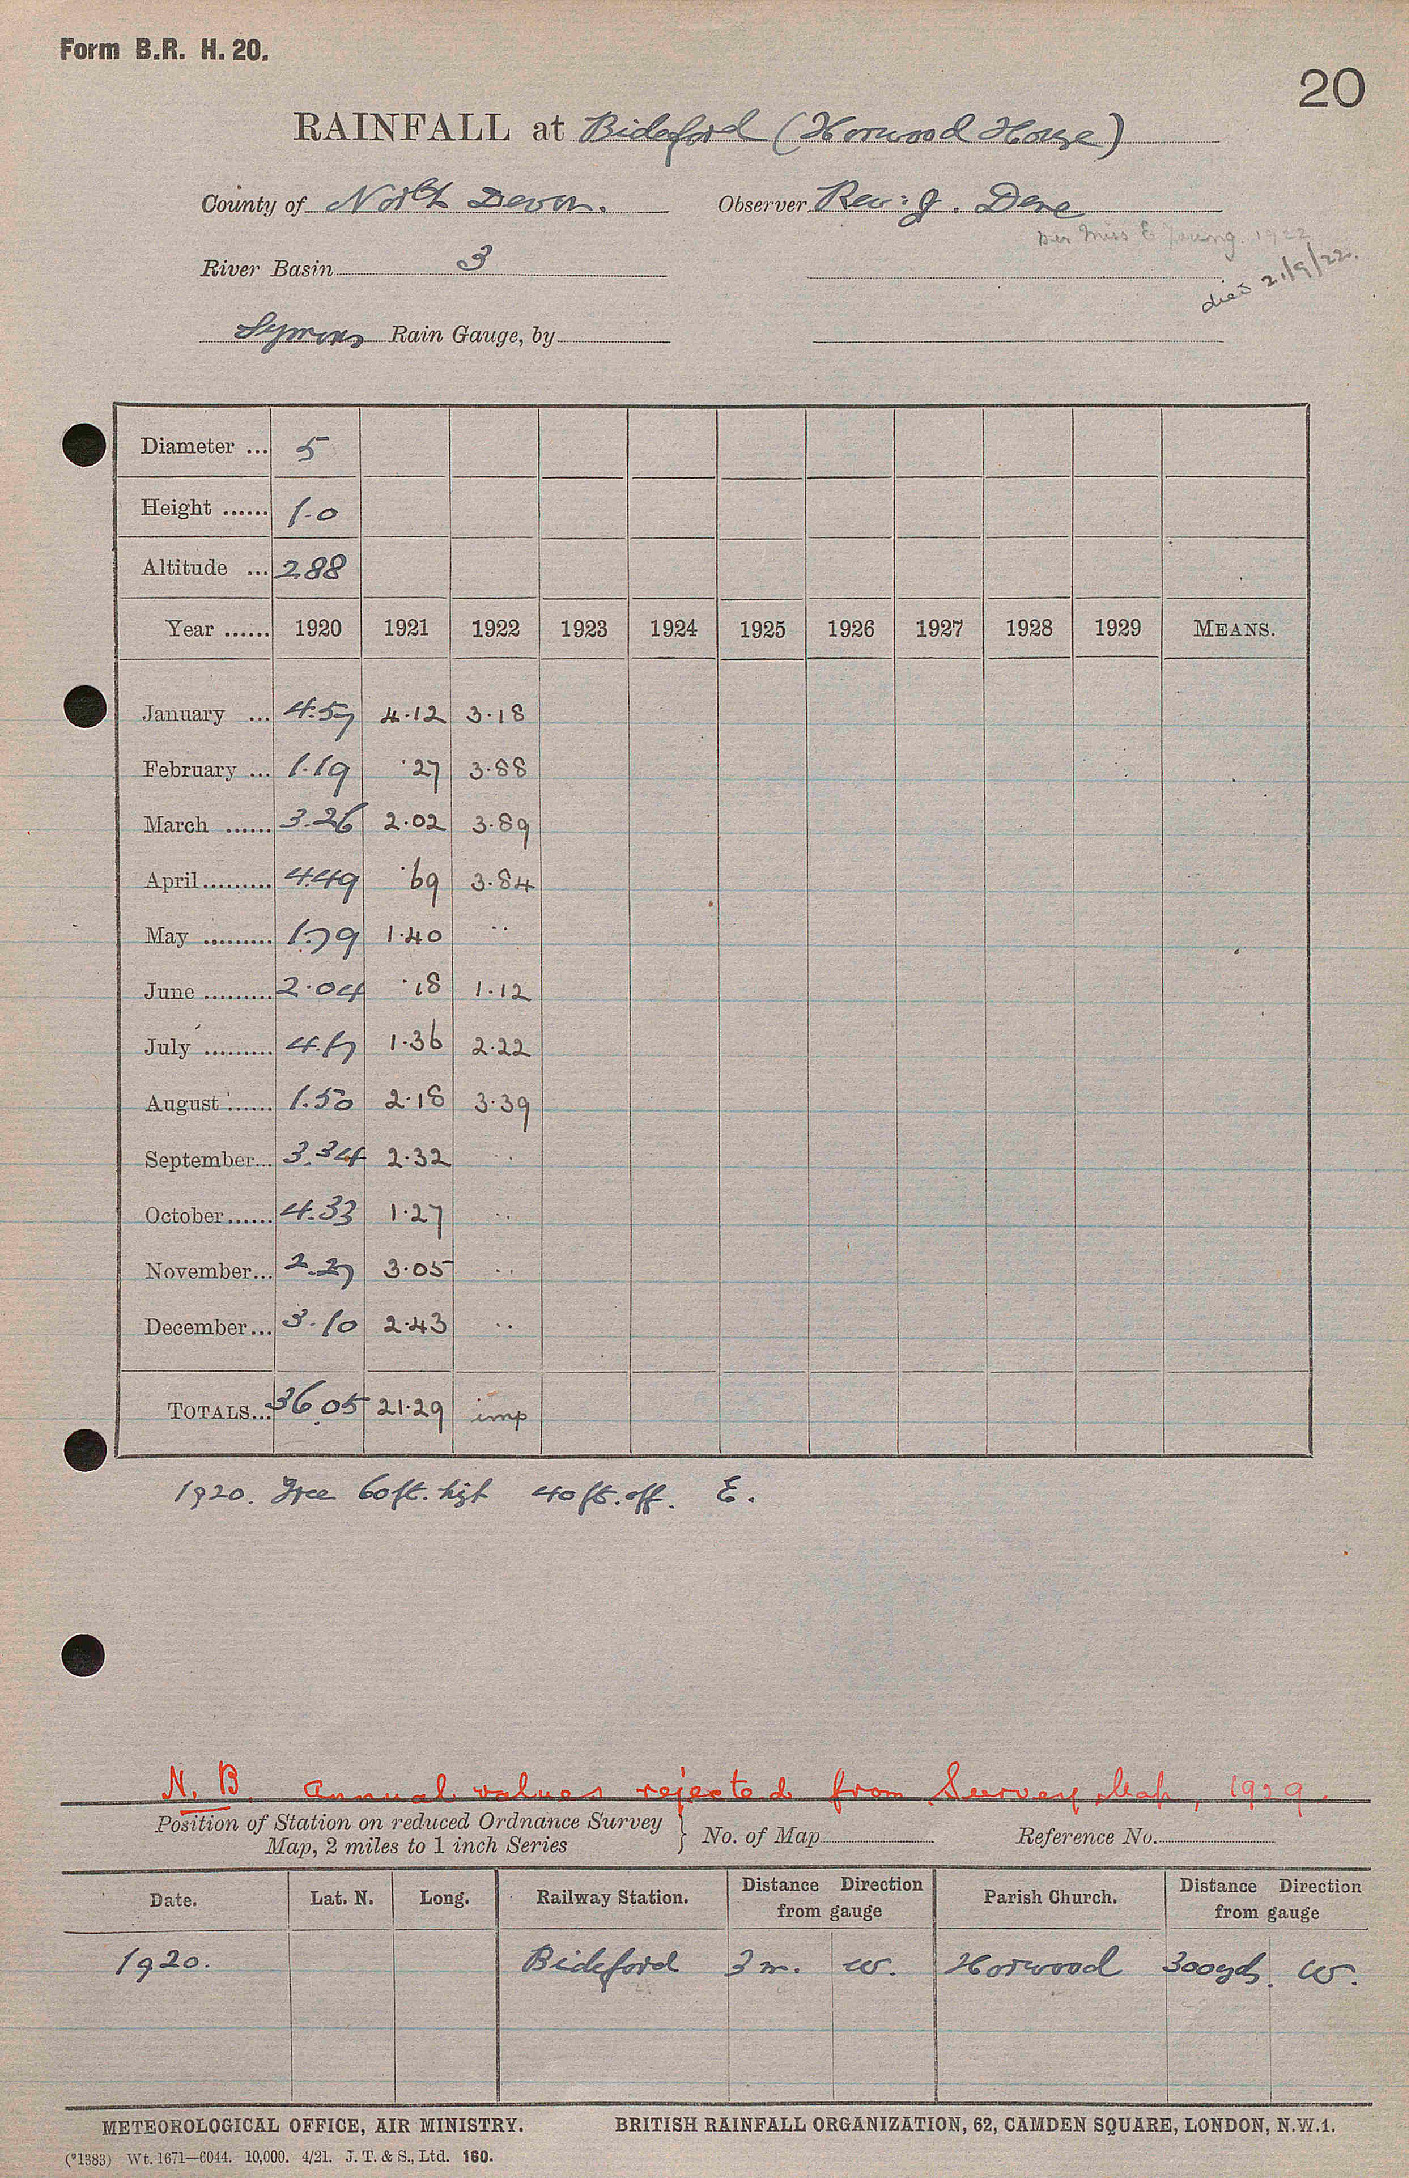 Form B.R. H. 20.
20
RAINFALL at Bideford (Horwood House)
County of North Devon. Observer Rev: J. Dene
per Miss E Young. 1922
River Basin 3
died 21/9/22.
Symons Rain Gauge, by
Diameter ... 5
Height ...... 1-0
Altitude ... 288
Year ...... 1920 1921 1922 1923 1924 1925 1926 1927 1928 1929 MEANS.
January ... 4.57 4.12 3.18
February ... 1.19 .27 3.88
March ...... 3.26 2.02 3.89
April ......... 4.49 .69 3.84
May ......... 1.79 1.40 ..
June ......... 2.04 .18 1.12
July ......... 4.17 1.36 2.22
August ...... 1.50 2.18 3.39
September... 3.34 2.32 ..
October...... 4.33 1.27 ..
November... 2.27 3.05 ..
December... 3.10 2.43 ..
TOTALS... 36.05 21.29 imp
1920. Tree 60ft. high 40 ft. off. E.
N. B. Annual values rejected from Survey Map, 1929.
Position of Station on reduced Ordnance Survey
Map, 2 miles to 1 inch Series } No. of Map Reference No.
Date. Lat. N. Long. Railway Station. Distance Direction from gauge Parish Church. Distance Direction from gauge
1920. Bideford 3 m. W. Horwood 300yds. W.
METEOROLOGICAL OFFICE, AIR MINISTRY. BRITISH RAINFALL ORGANIZATION, 62, CAMDEN SQUARE, LONDON, N.W.1.
(*1383) Wt. 1671—6044. 10,000. 4/21. J. T. & S., Ltd. 160.